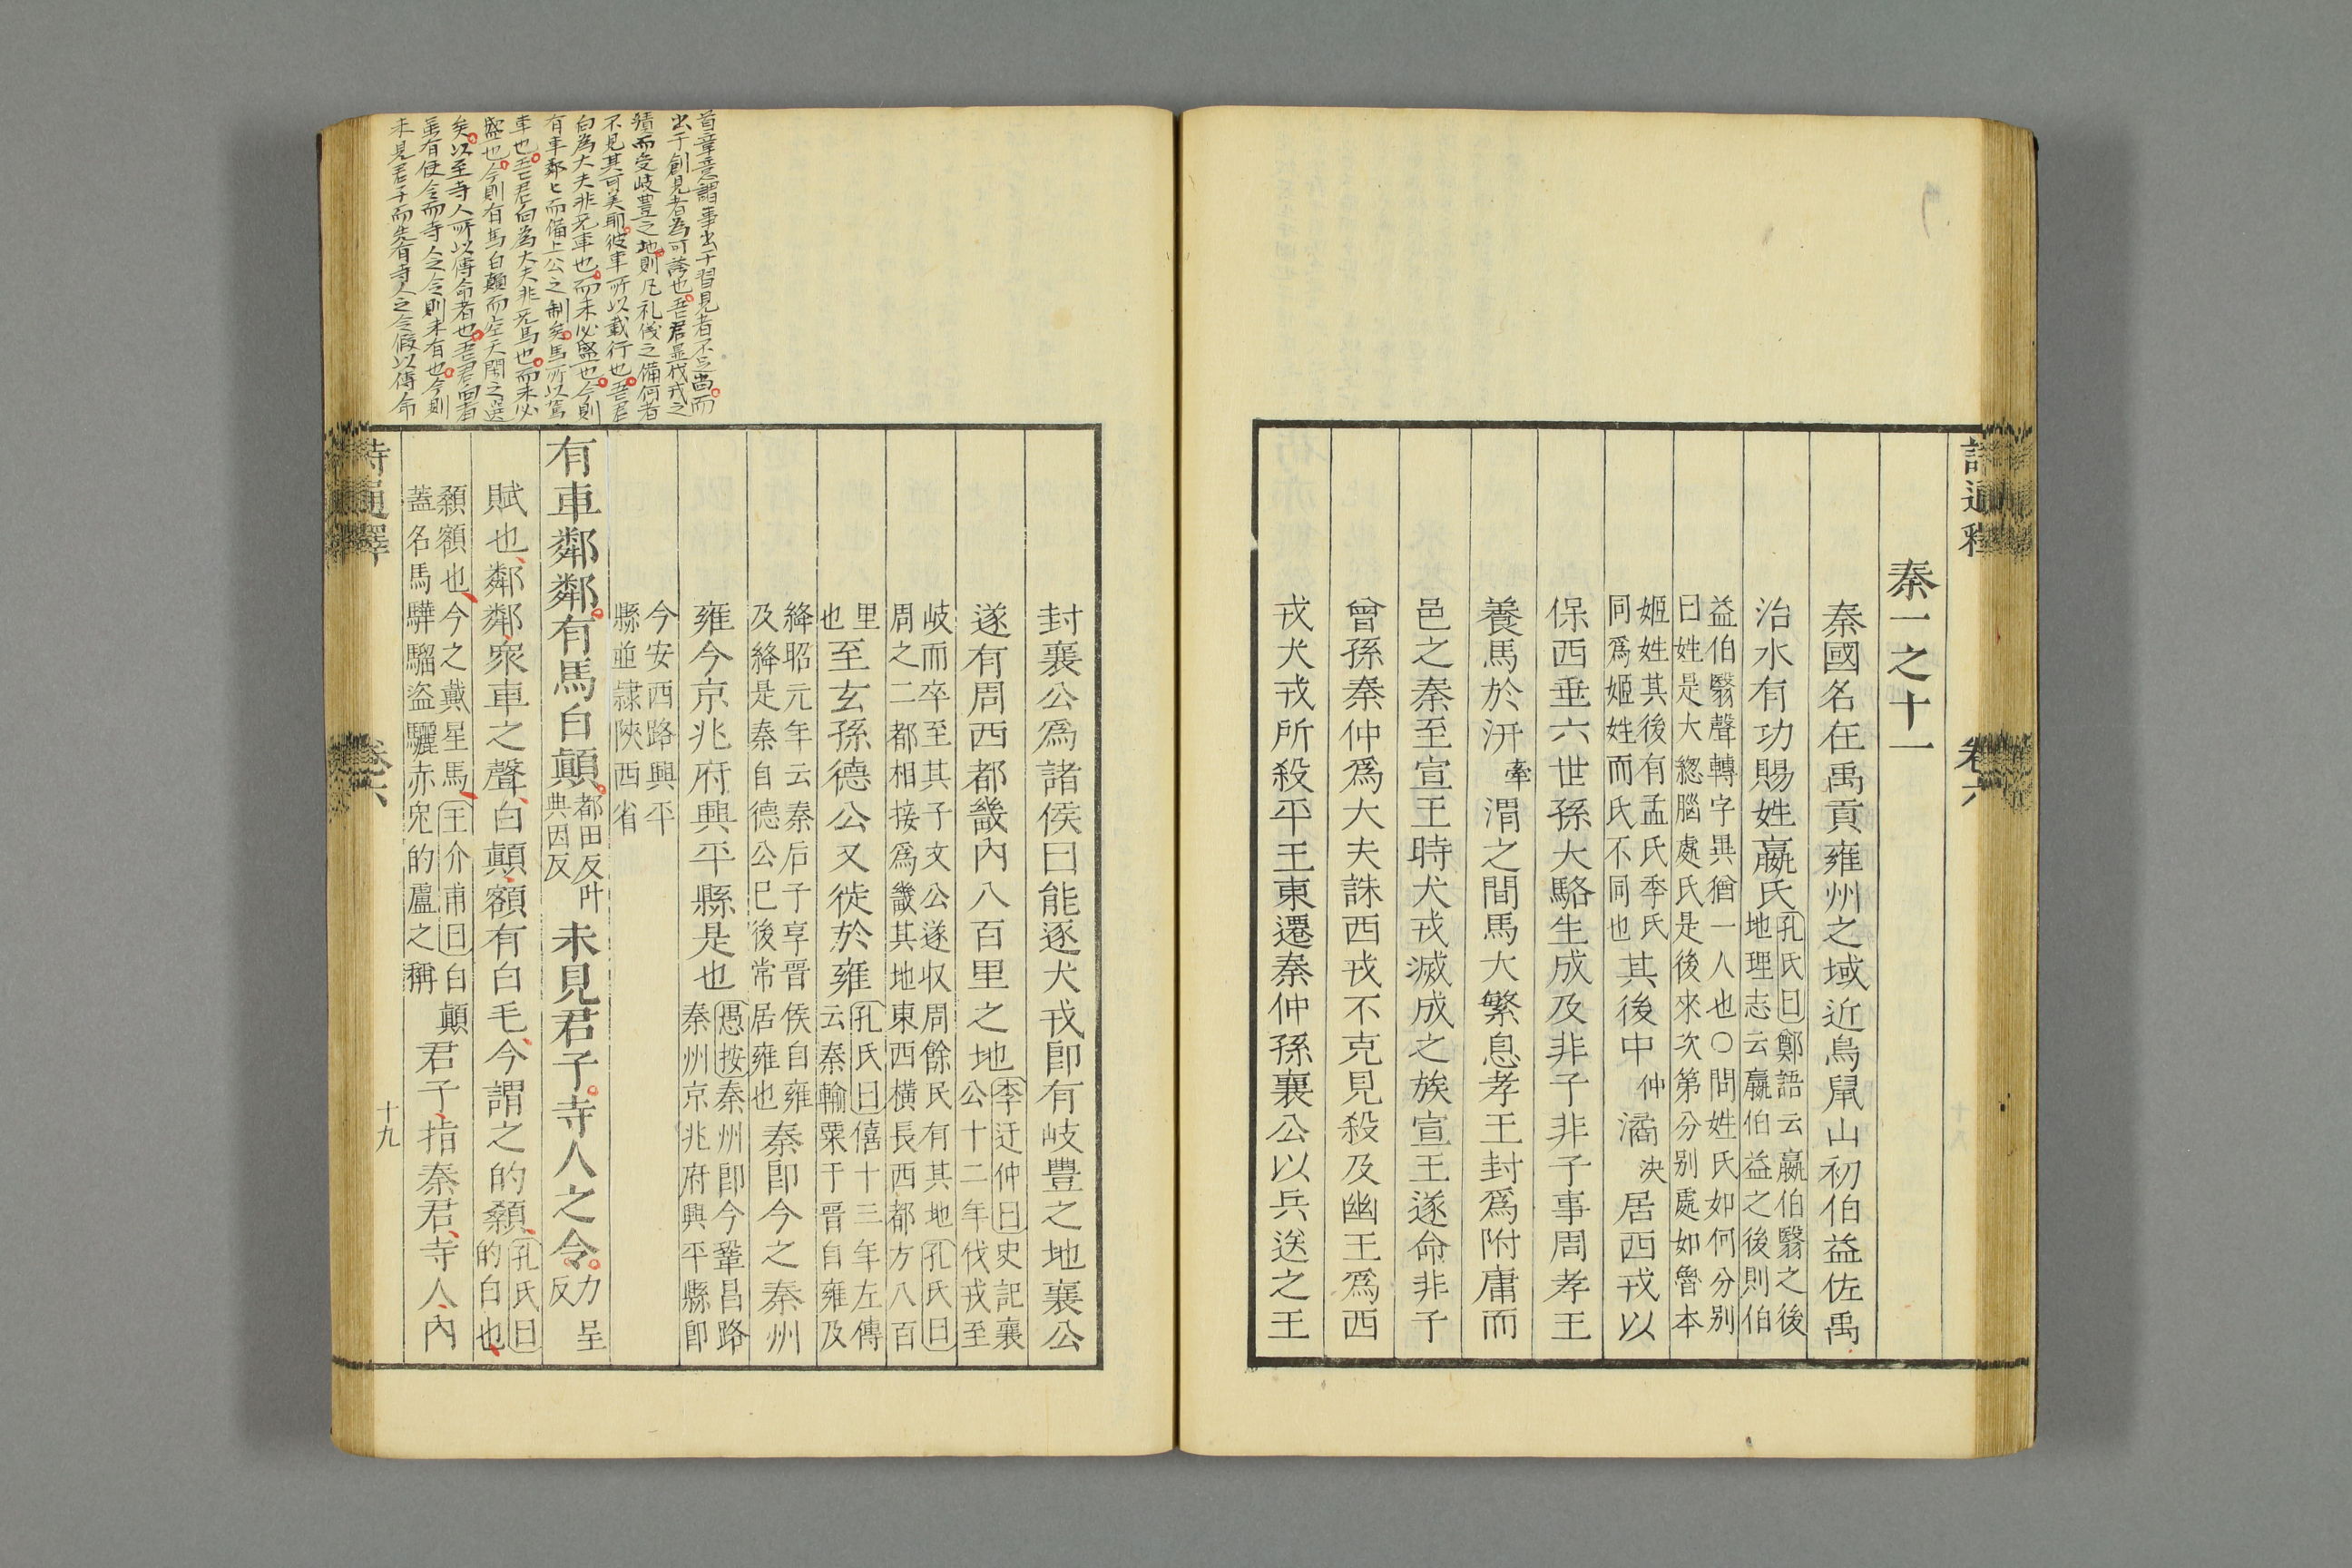 詩通釋 卷六
秦一之十一
秦國名在禹貢雍州之域近鳥鼠山初伯益佐禹
治水有功賜姓嬴氏孔氏曰鄭語云嬴伯翳之後
地理志云嬴伯益之後則伯
益伯翳聲轉字異猶一人也○問姓氏如何分别
曰姓是大緫腦處氏是後來次第分别處如魯本
姬姓其後有孟氏季氏
同爲姬姓而氏不同也
其後中仲潏決居西戎以
保西垂六世孫大駱生成及非子非子事周孝王
養馬於汧牽渭之間馬大繁息孝王封爲附庸而
邑之秦至宣王時犬戎滅成之族宣王遂命非子
曾孫秦仲爲大夫誅西戎不克見殺及幽王爲西
戎犬戎所殺平王東遷秦仲孫襄公以兵送之王
封襄公爲諸侯曰能逐犬戎卽有岐豐之地襄公
遂有周西都畿內八百里之地李迂仲曰史記襄
公十二年伐戎至
岐而卒至其子文公遂収周餘民有其地孔氏曰
周之二都相接爲畿其地東西橫長西都方八百
里
也
至玄孫德公又徙於雍孔氏曰僖十三年左傳
云秦輸粟于晉自雍及
絳昭元年云秦后子享晉侯自雍
及絳是秦自德公已後常居雍也
秦卽今之秦州
雍今京兆府興平縣是也愚按秦州卽今鞏昌路
秦州京兆府興平縣卽
今安西路興平
縣並隷陝西省
有車鄰鄰有馬白顛都田反叶
典因反
未見君子寺人之令力呈
反
賦也鄰鄰衆車之聲白顛額有白毛今謂之的顙孔氏曰
的白也
顙額也今之戴星馬王介甫曰白顛
蓋名馬驊騮盜驪赤兔的盧之稱
君子指秦君寺人內
十九
詩通釋 卷六
首章意謂事出于習見者不足尚而
出于創見者爲可誇也吾君是伐戎之
績而受岐豊之地則凡礼儀之備何者
不見其可美耶彼車所以載行也吾君
向為大夫非无車也而未必盛也今則
有車鄰匕而備上公之制矣馬所以駕
車也吾君向為大夫非无馬也而未必
盛也今則有馬白顛而空天閑之選
矣以至寺人所以傳命者也吾君向者
虽有使令而寺人之令則未有也今則
未見君子而先有寺人之令假以傳命